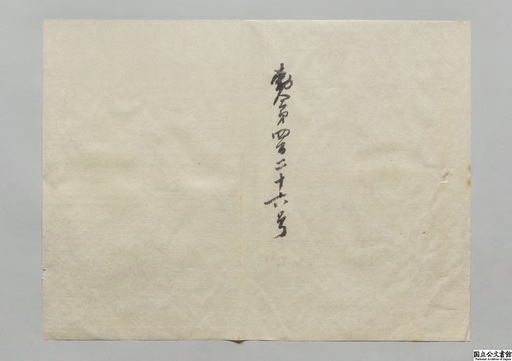 勅令第四百二十六号
国立公文書館
National Archives of Japan